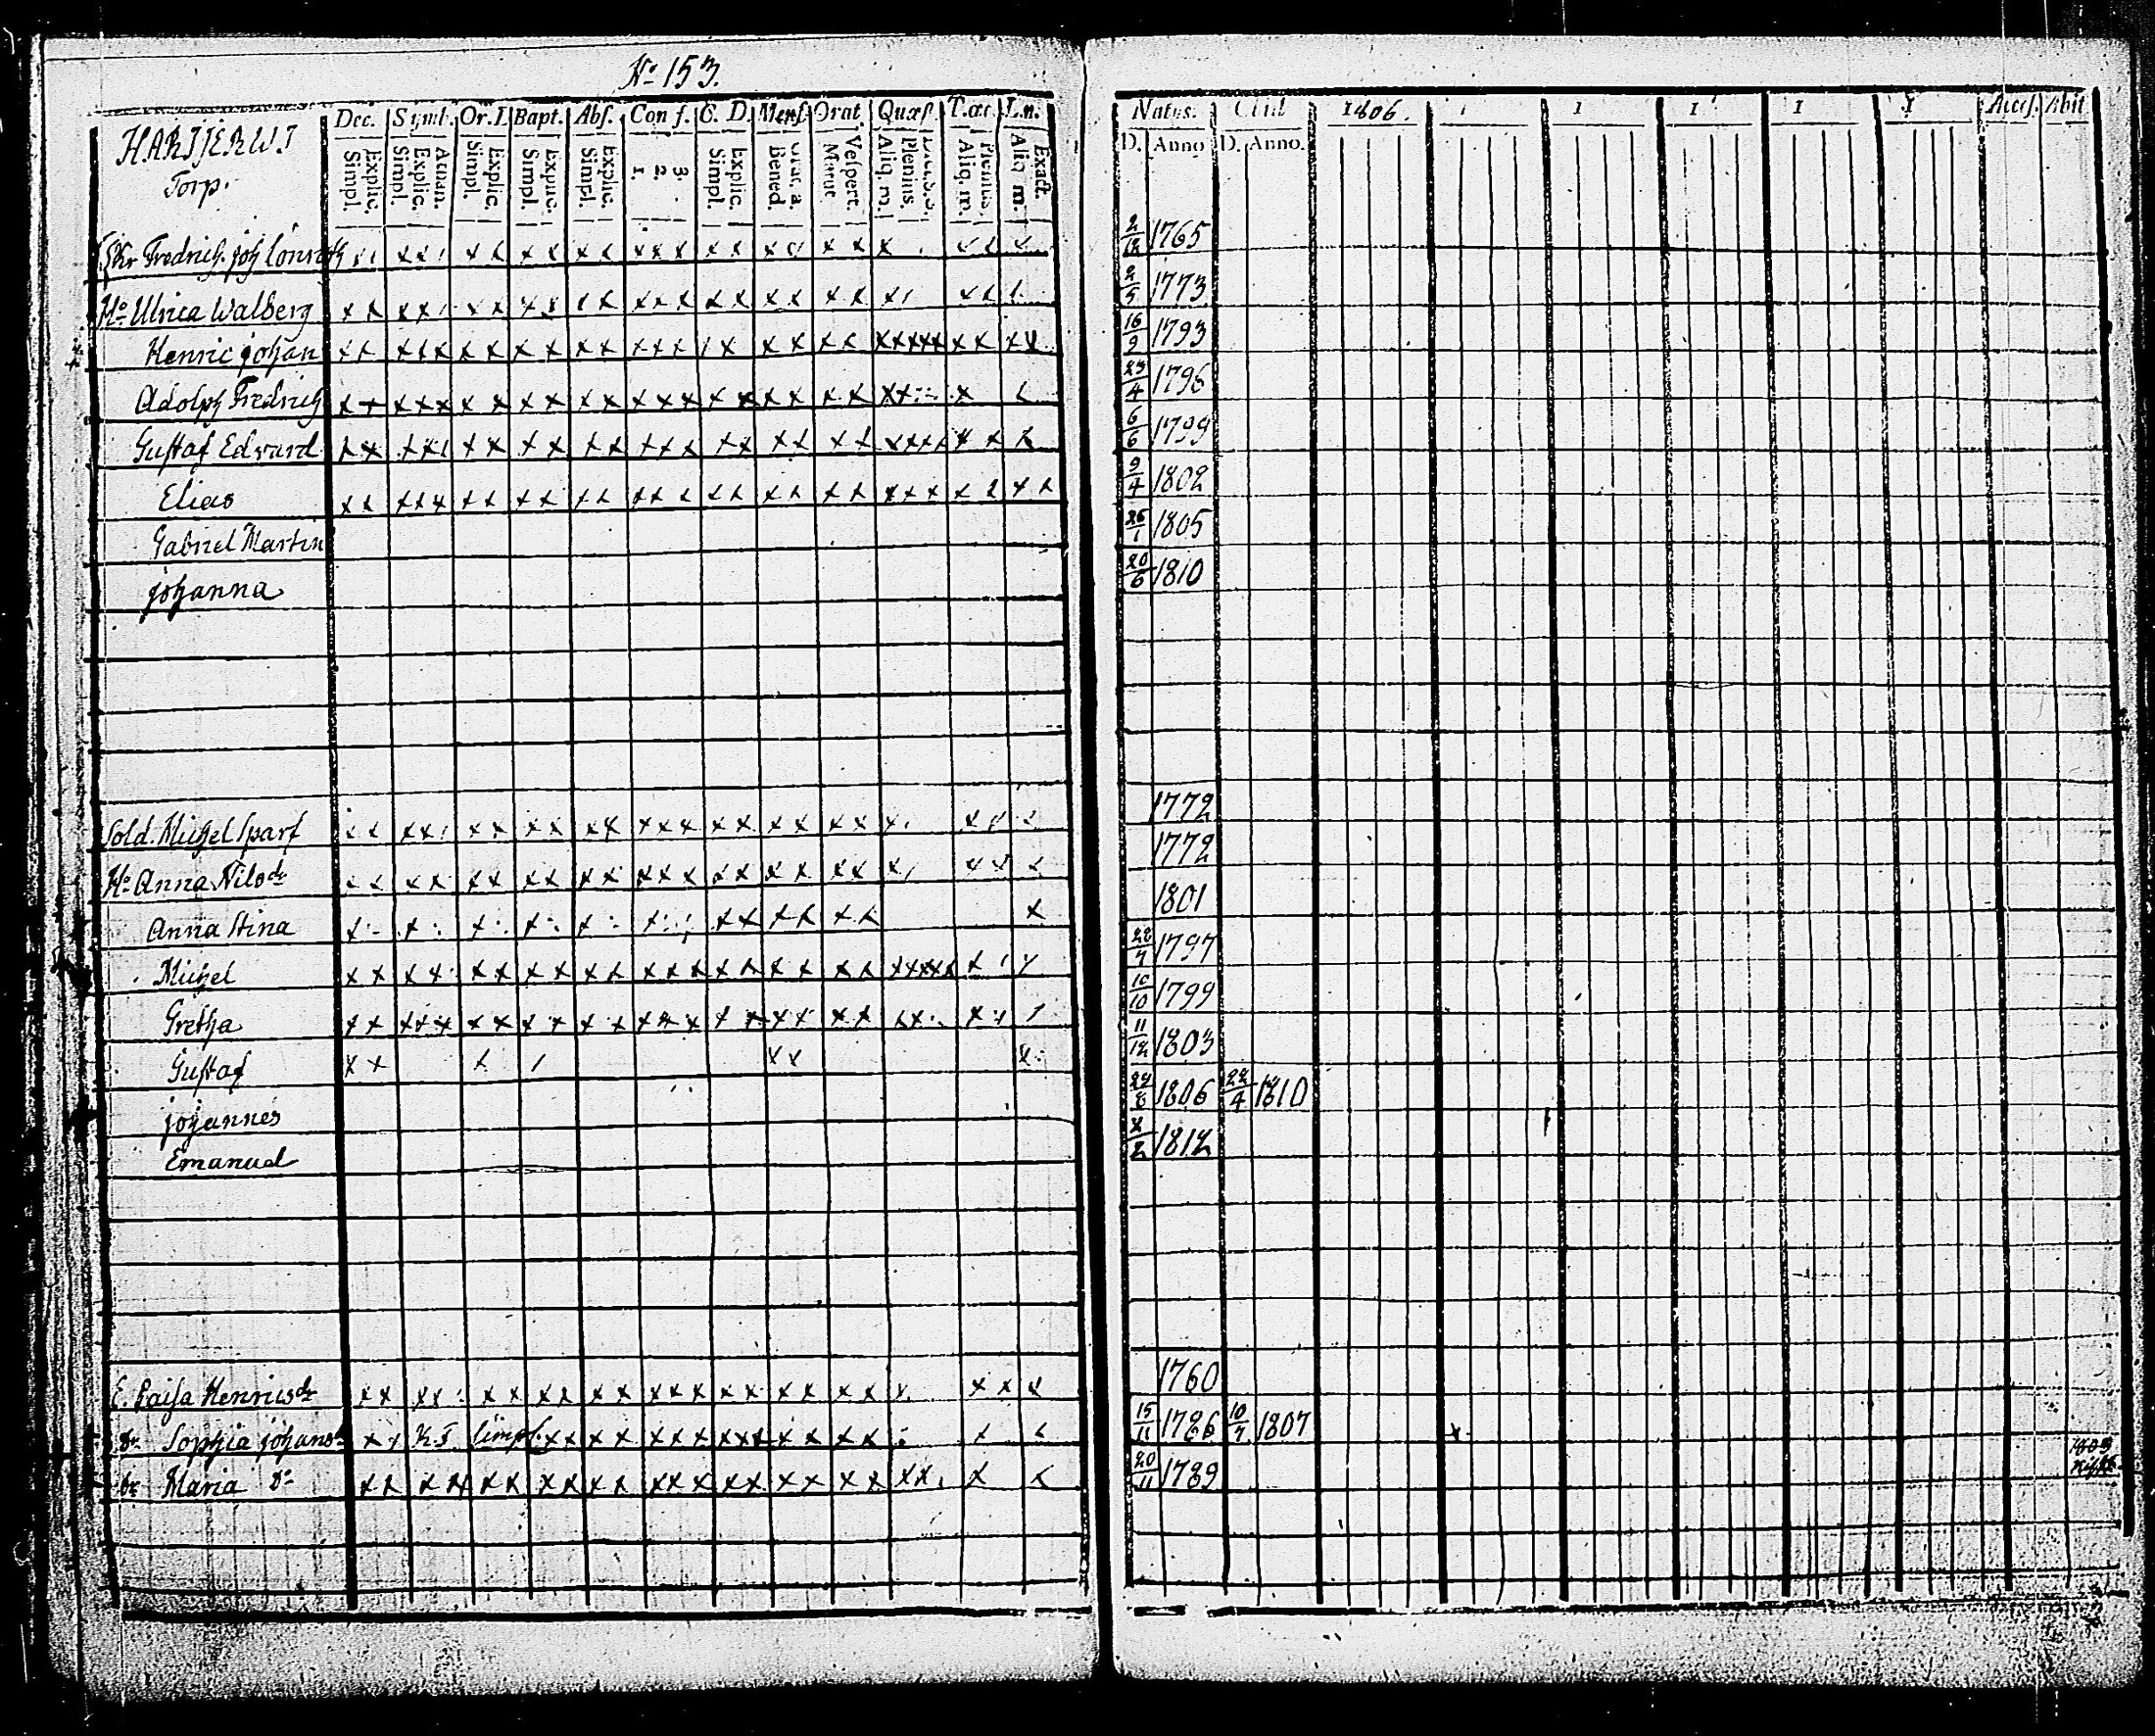 No 153.
HARJJERWJ
Torp.
Dec. Symb. Or. D. Bapt. Abs. Conf. C. D. Mens. Orat. Quæst. T. œc. L. n.
Explic. Simpl. Athan. Explic. Simpl. Explic. Simpl. Explic. Simpl. Explic. Simpl. 3. 2. 1. Explic. Simpl. Grat. a. Bened. Vespert. Matut. Plenius. Aliq. m. Plenius. Aliq. m. Exact. Aliq. m.
Natus. 1806. 1 1 1 1 1 Access. Abit
D. Anno D. Anno.
Fredrich. joh 2/12 1765
Ho Ulrica Walberg 2/5 1773
Henric johan 16/9 1793
Adolph Fredrich 23/4 1796
Gustaf Edvard 6/6 1799
Elias 9/4 1802
Gabriel Martin 26/1 1805
johanna 20/6 1810
Sold. Michel Sparf 1772
Ho Anna Nilsdr 1772
Anna Stina 1801
Michel 1797
Gretha 10/10 1799
Gustaf 11/12 1803
johannes 1806 22/4 1810
Emanuel 2/2 1812
E. Caisa Henricsdr 1760
dr Sophia johansdr simpl. 15/11 1786 10/7 1807
dr Maria Do 20/11 1789